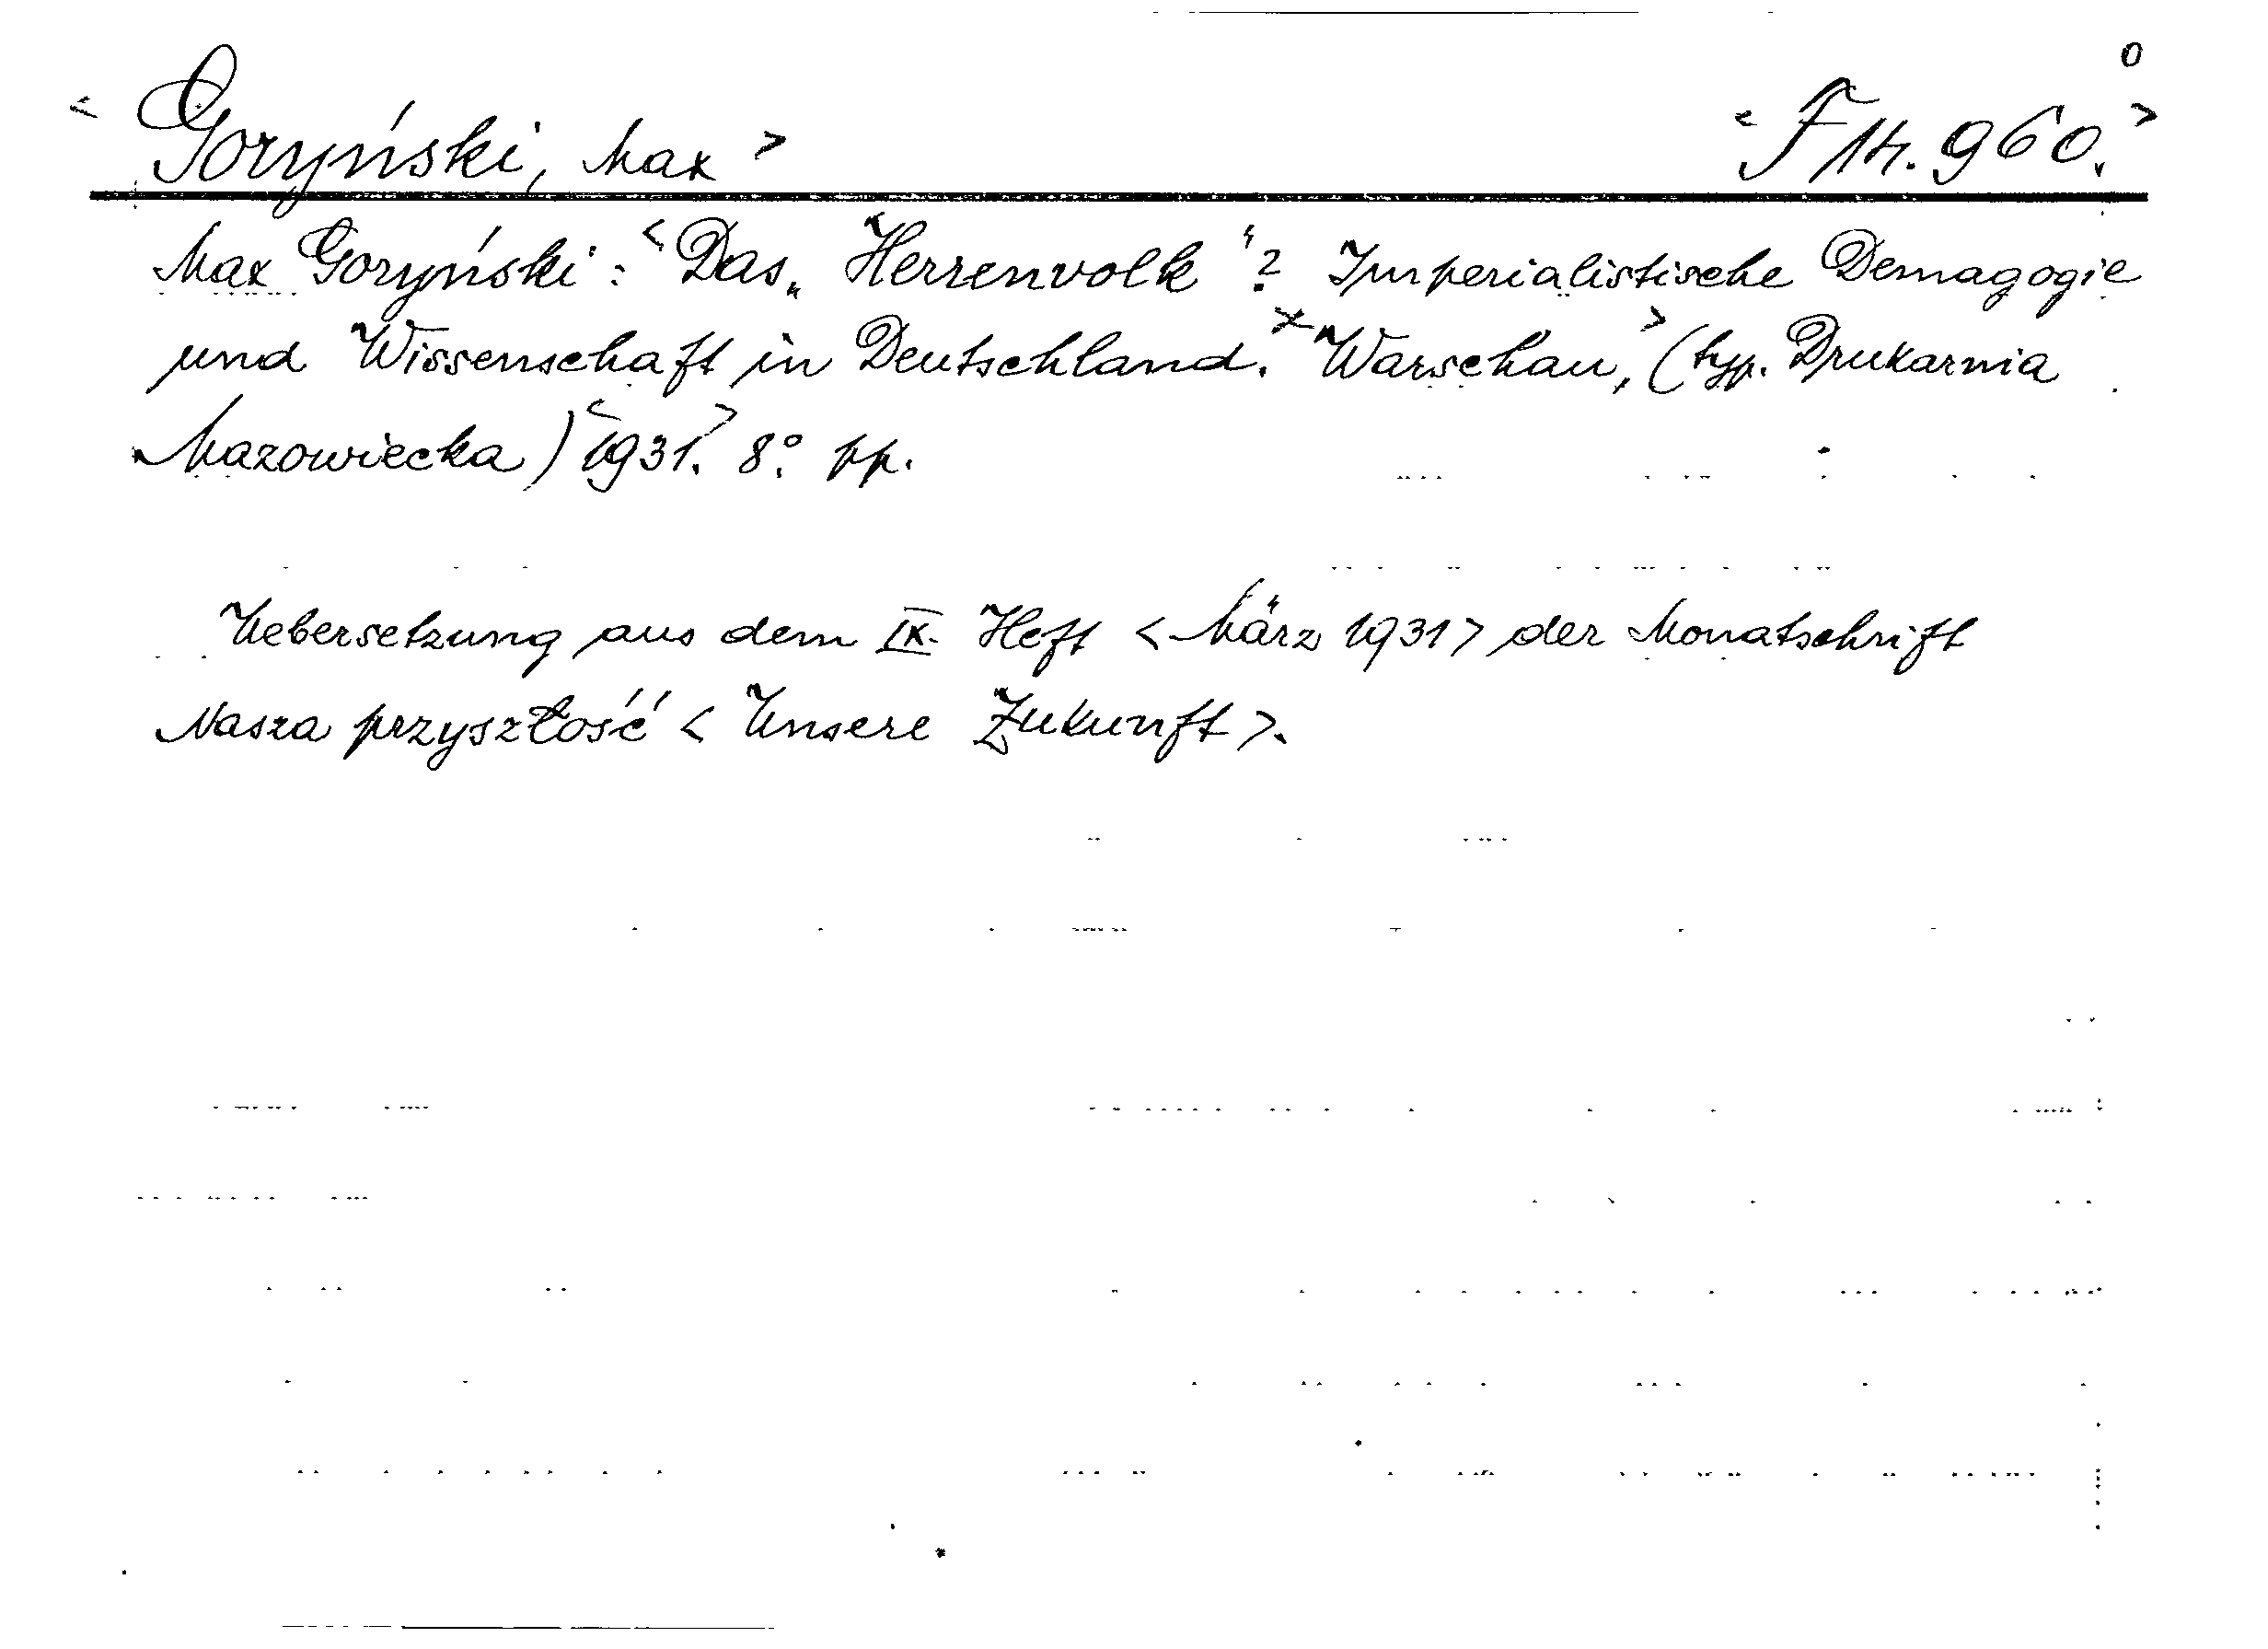 < Goryński, Max > < F 14.960. > 0
Max Goryński: < Das „Herrenvolk"? Imperialistische Demagogie
und Wissenschaft in Deutschland. × Warschau, > (typ. Drukarnia
Mazowiecka) < 1931. > 8° pp.
Uebersetzung aus dem IX. Heft < März 1931 > der Monatschrift
Nasza przyszłość < Unsere Zukunft >.